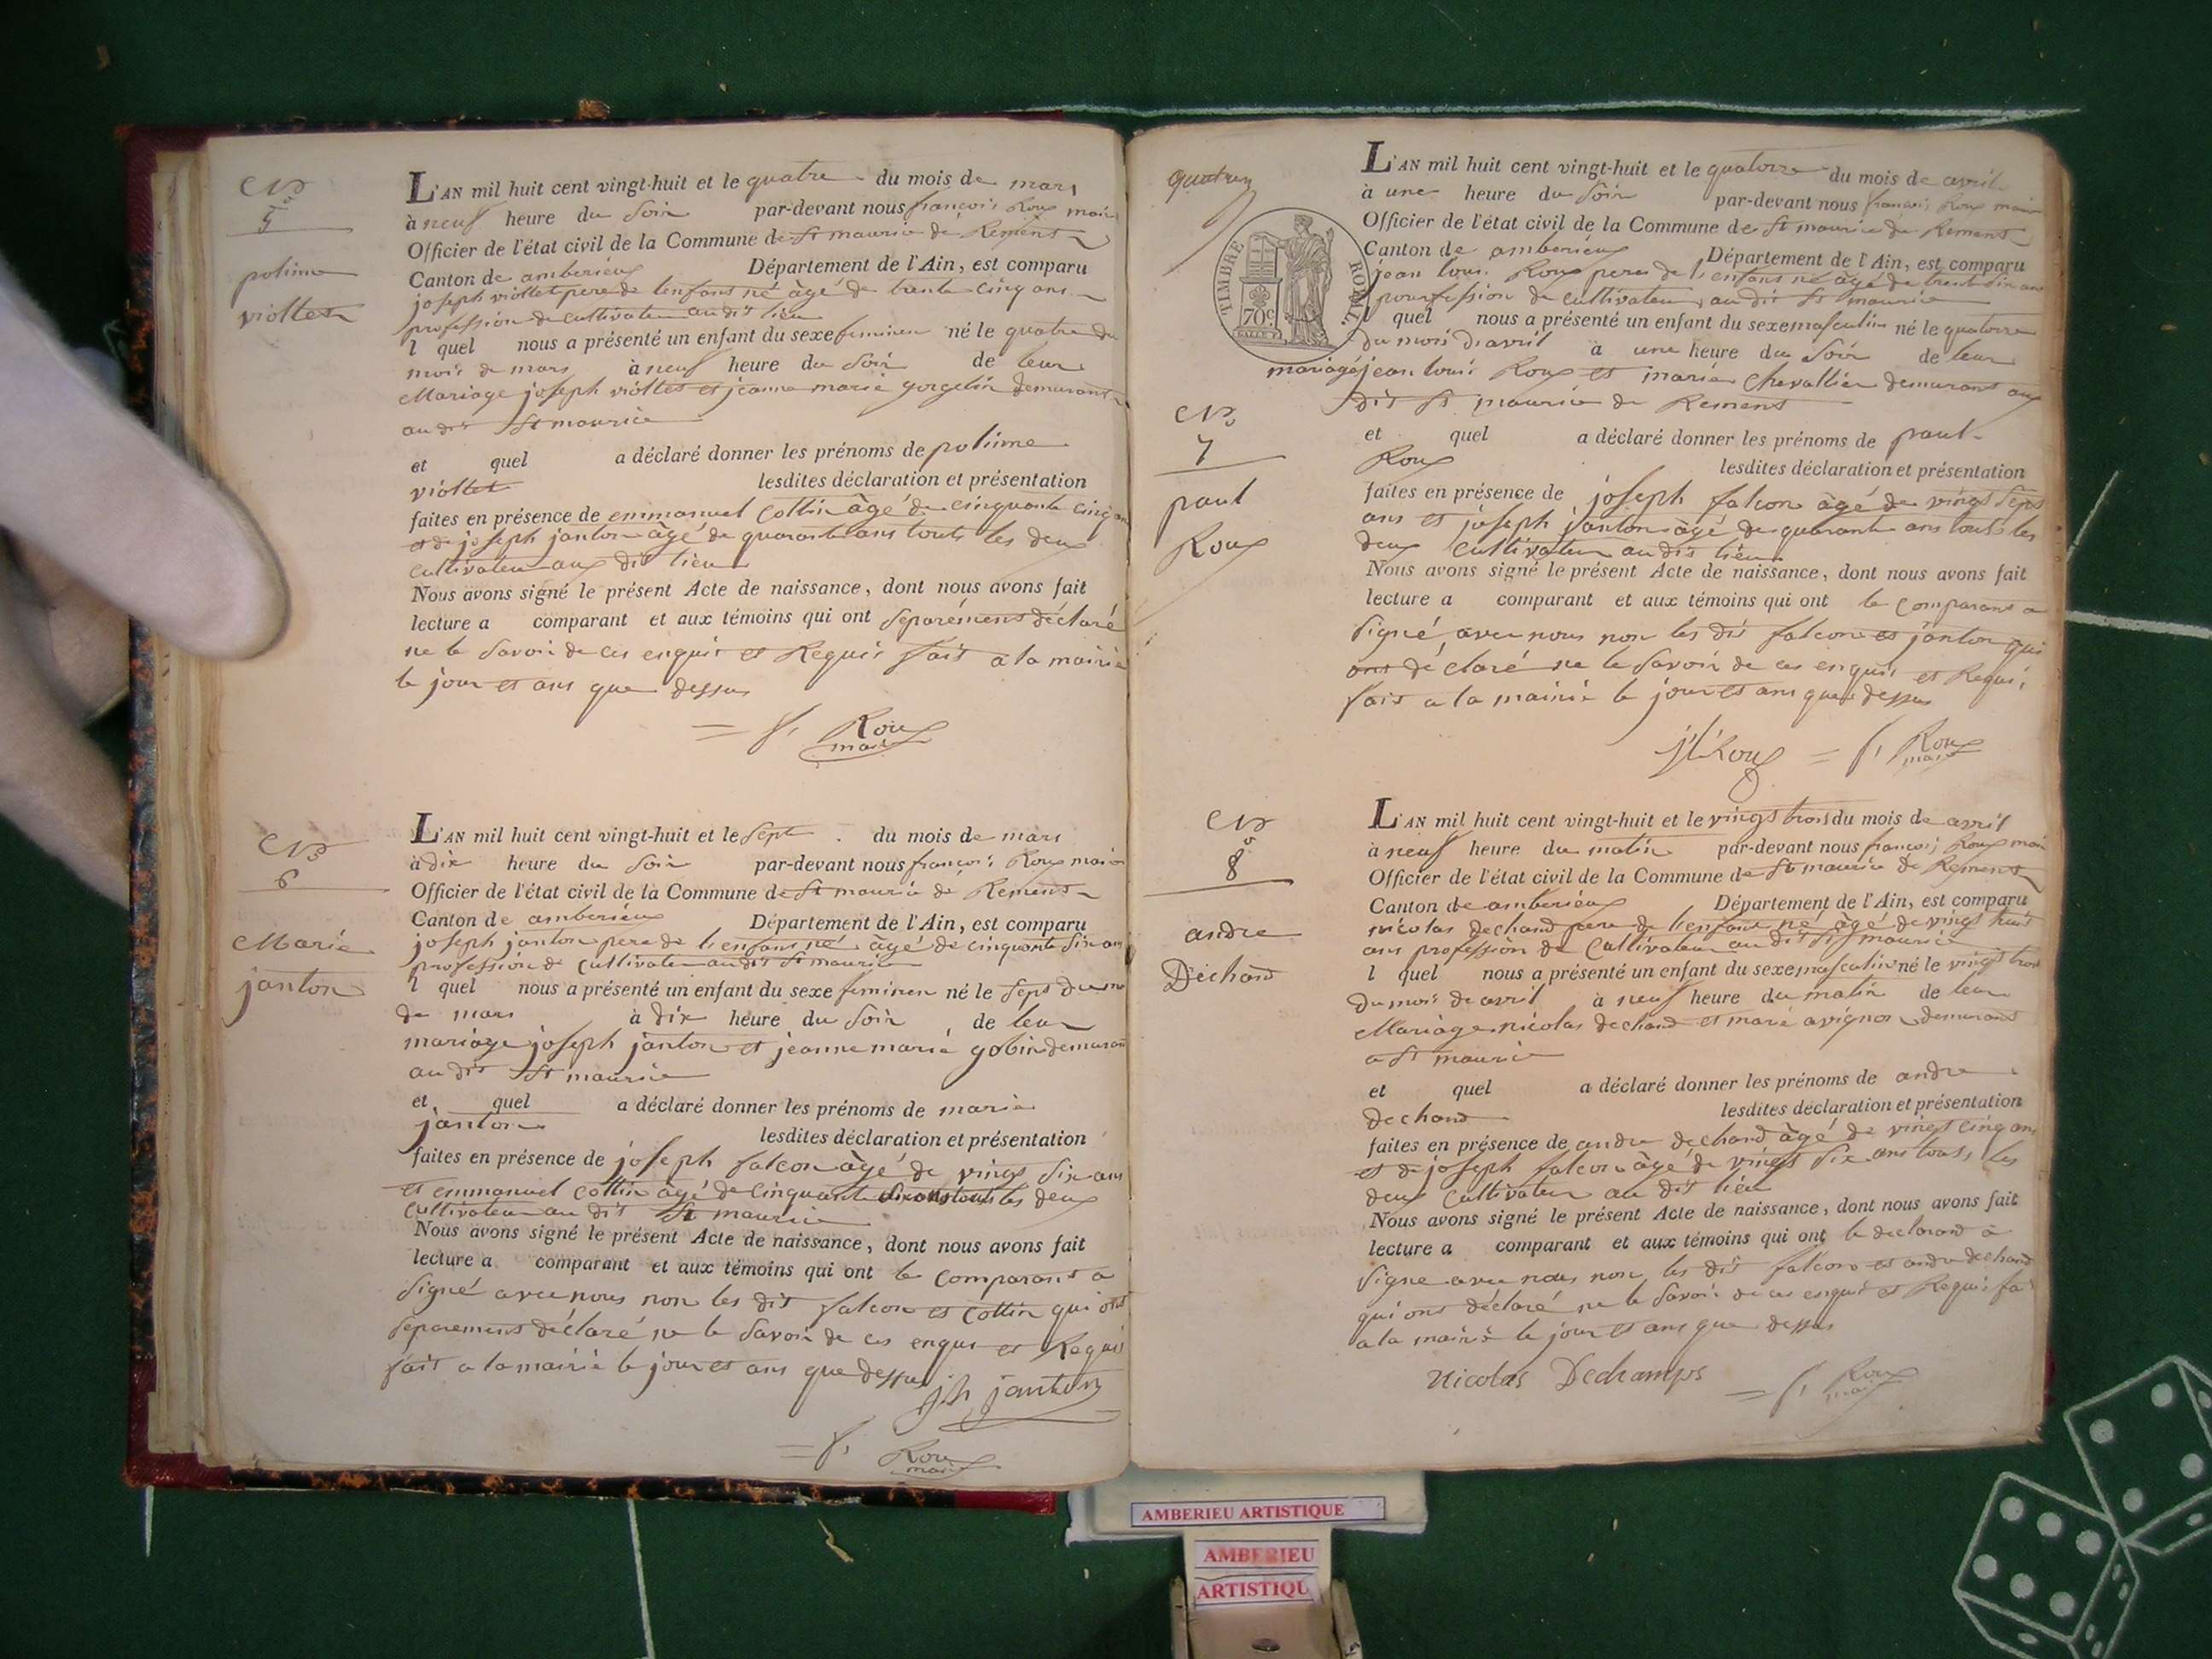 No
5
polime
viollet
L'AN mil huit cent vingt-huit et le quatre du mois de mars
à neuf heure du soir par-devant nous françois Roux maire
Officier de l'état civil de la Commune de St maurice de Remens
Canton de amberieux Département de l'Ain, est comparu
joseph viollet pere de lenfant né âgé de trente cinq ans
profession de cultivateur au dit lieu
l quel nous a présenté un enfant du sexe feminin né le quatre du
mois de mars à neuf heure du soir de leur
Mariage joseph viollet et jeanne marie gorgelin demurant
au dit St maurice
et quel a déclaré donner les prénoms de polime
viollet lesdites déclaration et présentation
faites en présence de emmanuel Collin âgé de cinquante cinq an
et de joseph janton âgé de quarante ans touts les deux
cultivateur aux dit lieu
Nous avons signé le présent Acte de naissance, dont nous avons fait
lecture a comparant et aux témoins qui ont separément déclaré
ne le savoir de ces enquis et Requis fait a la mairie
le jour et ans que dessus
f. Roux
maire
No
6
Marie
janton
L'AN mil huit cent vingt-huit et le sept du mois de mars
à dix heure du soir par-devant nous françois Roux maire
Officier de l'état civil de la Commune de St maurice de Remens
Canton de amberieux Département de l'Ain, est comparu
joseph janton pere de l'enfant né âgé de cinquante six ans
profession de cultivateur au dit St maurice
l quel nous a présenté un enfant du sexe feminen né le sept du m
de mars à dix heure du soir de leur
mariage joseph janton et jeanne marie gobin demurant
au dit St maurice
et quel a déclaré donner les prénoms de marie
janton
lesdites déclaration et présentation
faites en présence de joseph falcon âgé de vingt six ans
et emmanuel Collin âgé de cinquante six ans touts les deux
cultivateur au dit St maurice
Nous avons signé le présent Acte de naissance, dont nous avons fait
lecture a comparant et aux témoins qui ont le comparant a
signé avec nous non les dit falcon et Collin qui ont
separement déclaré ne le savoir de ces enquis et Requis
fait a la mairie le jour et ans que dessus
jh janton
f. Roux
maire
quatre
TIMBRE ROYAL
70c
No
7
paul
Roux
L'AN mil huit cent vingt-huit et le quatorze du mois de avril
à une heure du soir par-devant nous françois Roux maire
Officier de l'état civil de la Commune de St maurice de Remens
Canton de amberieux Département de l'Ain, est comparu
jean louis Roux pere de l'enfans né âgé de trent six ans
pourfession de cultivateur au dit St maurice
quel nous a présenté un enfant du sexe masculin né le quatorze
du mois d'avril à une heure du soir de leur
mariage jean louis Roux et marie Chevallier demurant aux
dit St maurice de Remens
et quel a déclaré donner les prénoms de paul
Roux lesdites déclaration et présentation
faites en présence de joseph falcon âgé de vingt sept
ans et joseph janton âgé de quarant ans touts les
deux cultivateur au dit lieu
Nous avons signé le présent Acte de naissance, dont nous avons fait
lecture a comparant et aux témoins qui ont le comparant a
signé avec nous non les dit falcon et janton qui
ont déclaré ne le savoir de ces enquis et Requis
fait a la mairie le jour et ans que dessus
jl Roux f. Roux
maire
No
8
andre
Dechand
L'AN mil huit cent vingt-huit et le vingt trois du mois de avril
à neuf heure du matin par-devant nous françois Roux maire
Officier de l'état civil de la Commune de St maurice de Remens
Canton de amberieux Département de l'Ain, est comparu
nicolas dechand pere de l'enfant né âgé de vingt huit
ans profession de Cultivateur au dit St maurice
l quel nous a présenté un enfant du sexe masculin né le vingt trois
du mois de avril à neuf heure du matin de leur
Mariage nicolas dechand et marie avignon demurant
a St maurice
et quel a déclaré donner les prénoms de andre
dechand lesdites déclaration et présentation
faites en présence de andre dechand âgé de vingt cinq ans
et de joseph falcon âgé de vingt six ans touts les
deux Cultivateur au dit lieu
Nous avons signé le présent Acte de naissance, dont nous avons fait
lecture a comparant et aux témoins qui ont le declarand a
signe avec nous non les dit falcon et andre dechand
qui ont déclaré ne le savoir de ces enquis et Requis fa
a la mairie le jour et ans que dessus
Nicolas Dechamps f. Roux
maire
AMBERIEU ARTISTIQUE
AMBERIEU
ARTISTIQU